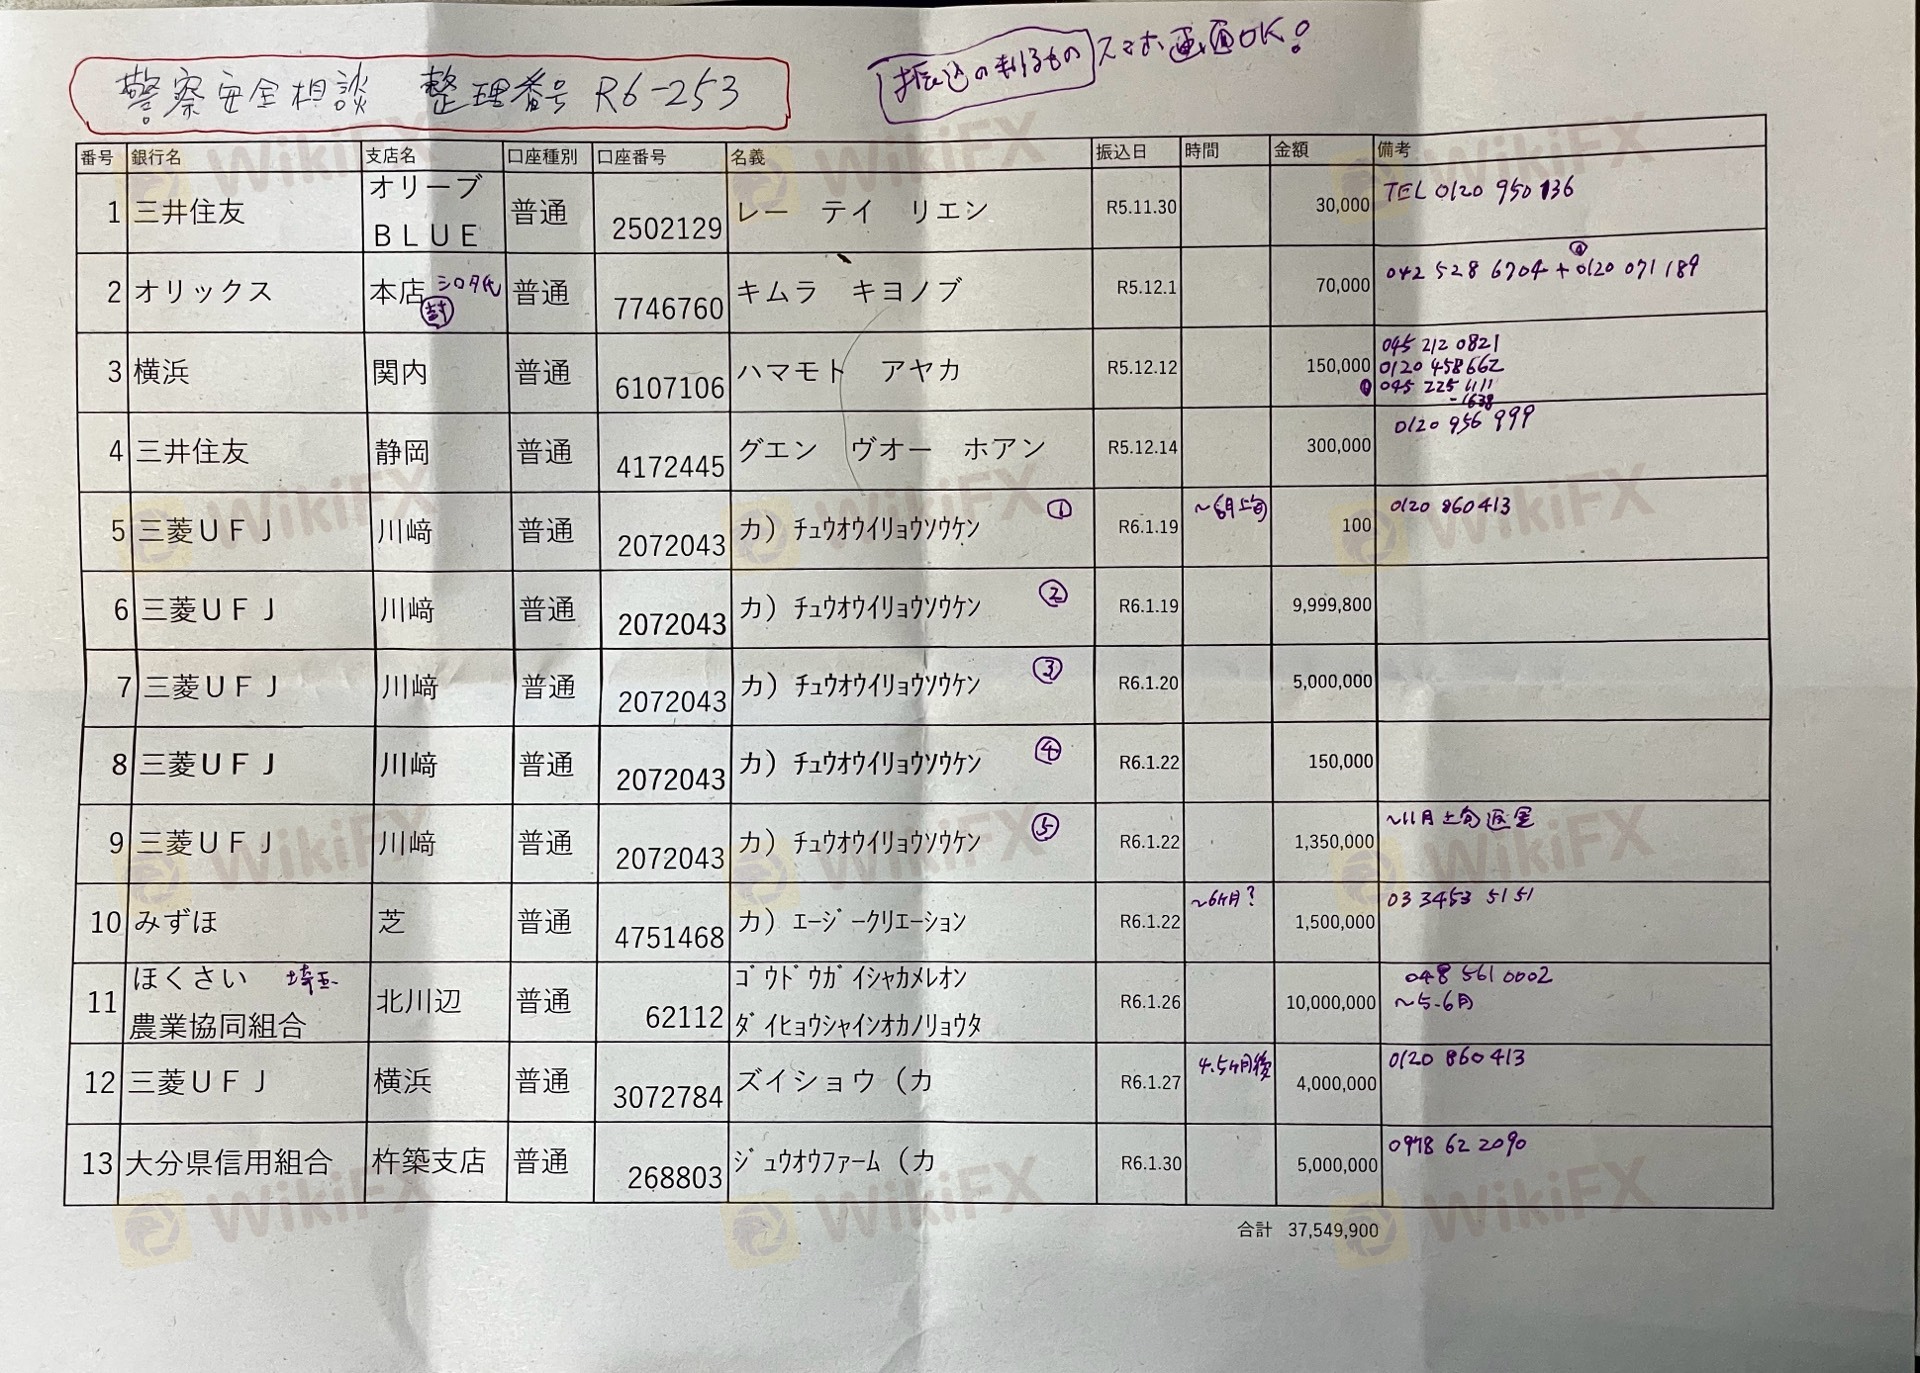 警察安全相談 整理番号 R6-253
振込の判るもの スマホ画面OK!
番号 銀行名 支店名 口座種別 口座番号 名義 振込日 時間 金額 備考
1 三井住友 オリーブ BLUE 普通 2502129 レー テイ リエン R5.11.30 30,000 TEL 0120 950 136
2 オリックス 本店 普通 7746760 キムラ キヨノブ R5.12.1 70,000 042 528 6704 + 0120 071 189
3 横浜 関内 普通 6107106 ハマモト アヤカ R5.12.12 150,000 045 212 0821
0120 458662
045 225 1111
-1638
4 三井住友 静岡 普通 4172445 グエン ヴオー ホアン R5.12.14 300,000 0120 956 999
5 三菱UFJ 川﨑 普通 2072043 カ）チュウオウイリョウソウケン ① R6.1.19 ～6月上旬 100 0120 860413
6 三菱UFJ 川﨑 普通 2072043 カ）チュウオウイリョウソウケン ② R6.1.19 9,999,800
7 三菱UFJ 川﨑 普通 2072043 カ）チュウオウイリョウソウケン ③ R6.1.20 5,000,000
8 三菱UFJ 川﨑 普通 2072043 カ）チュウオウイリョウソウケン ④ R6.1.22 150,000
9 三菱UFJ 川﨑 普通 2072043 カ）チュウオウイリョウソウケン ⑤ R6.1.22 1,350,000 ～11月上旬返金
10 みずほ 芝 普通 4751468 カ）エージークリエーション R6.1.22 ～6ヶ月? 1,500,000 03 3453 5151
11 ほくさい 埼玉 農業協同組合 北川辺 普通 62112 ゴウドウガイシャカメレオン ダイヒョウシャインオカノリョウタ R6.1.26 10,000,000 048 561 0002
～5.6月
12 三菱UFJ 横浜 普通 3072784 ズイショウ（カ R6.1.27 4.5ヶ月後 4,000,000 0120 860413
13 大分県信用組合 杵築支店 普通 268803 ジュウオウファーム（カ R6.1.30 5,000,000 0978 62 2090
合計 37,549,900
WikiFX
WikiFX
WikiFX
WikiFX
WikiFX
WikiFX
WikiFX
WikiFX
WikiFX
WikiFX
WikiFX
WikiFX